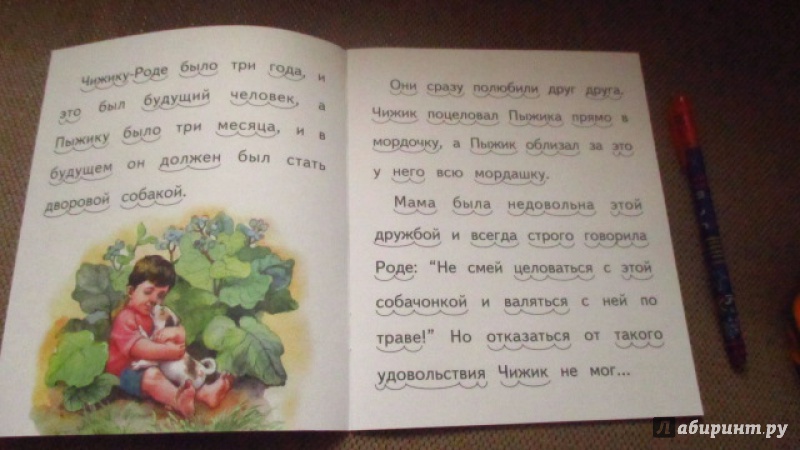 Чижику-Роде было три года, и
это был будущий человек, а
Пыжику было три месяца, и в
будущем он должен был стать
дворовой собакой.
Они сразу полюбили друг друга.
Чижик поцеловал Пыжика прямо в
мордочку, а Пыжик облизал за это
у него всю мордашку.
Мама была недовольна этой
дружбой и всегда строго говорила
Роде: "Не смей целоваться с этой
собачонкой и валяться с ней по
траве!" Но отказаться от такого
удовольствия Чижик не мог...
Лабиринт.ру